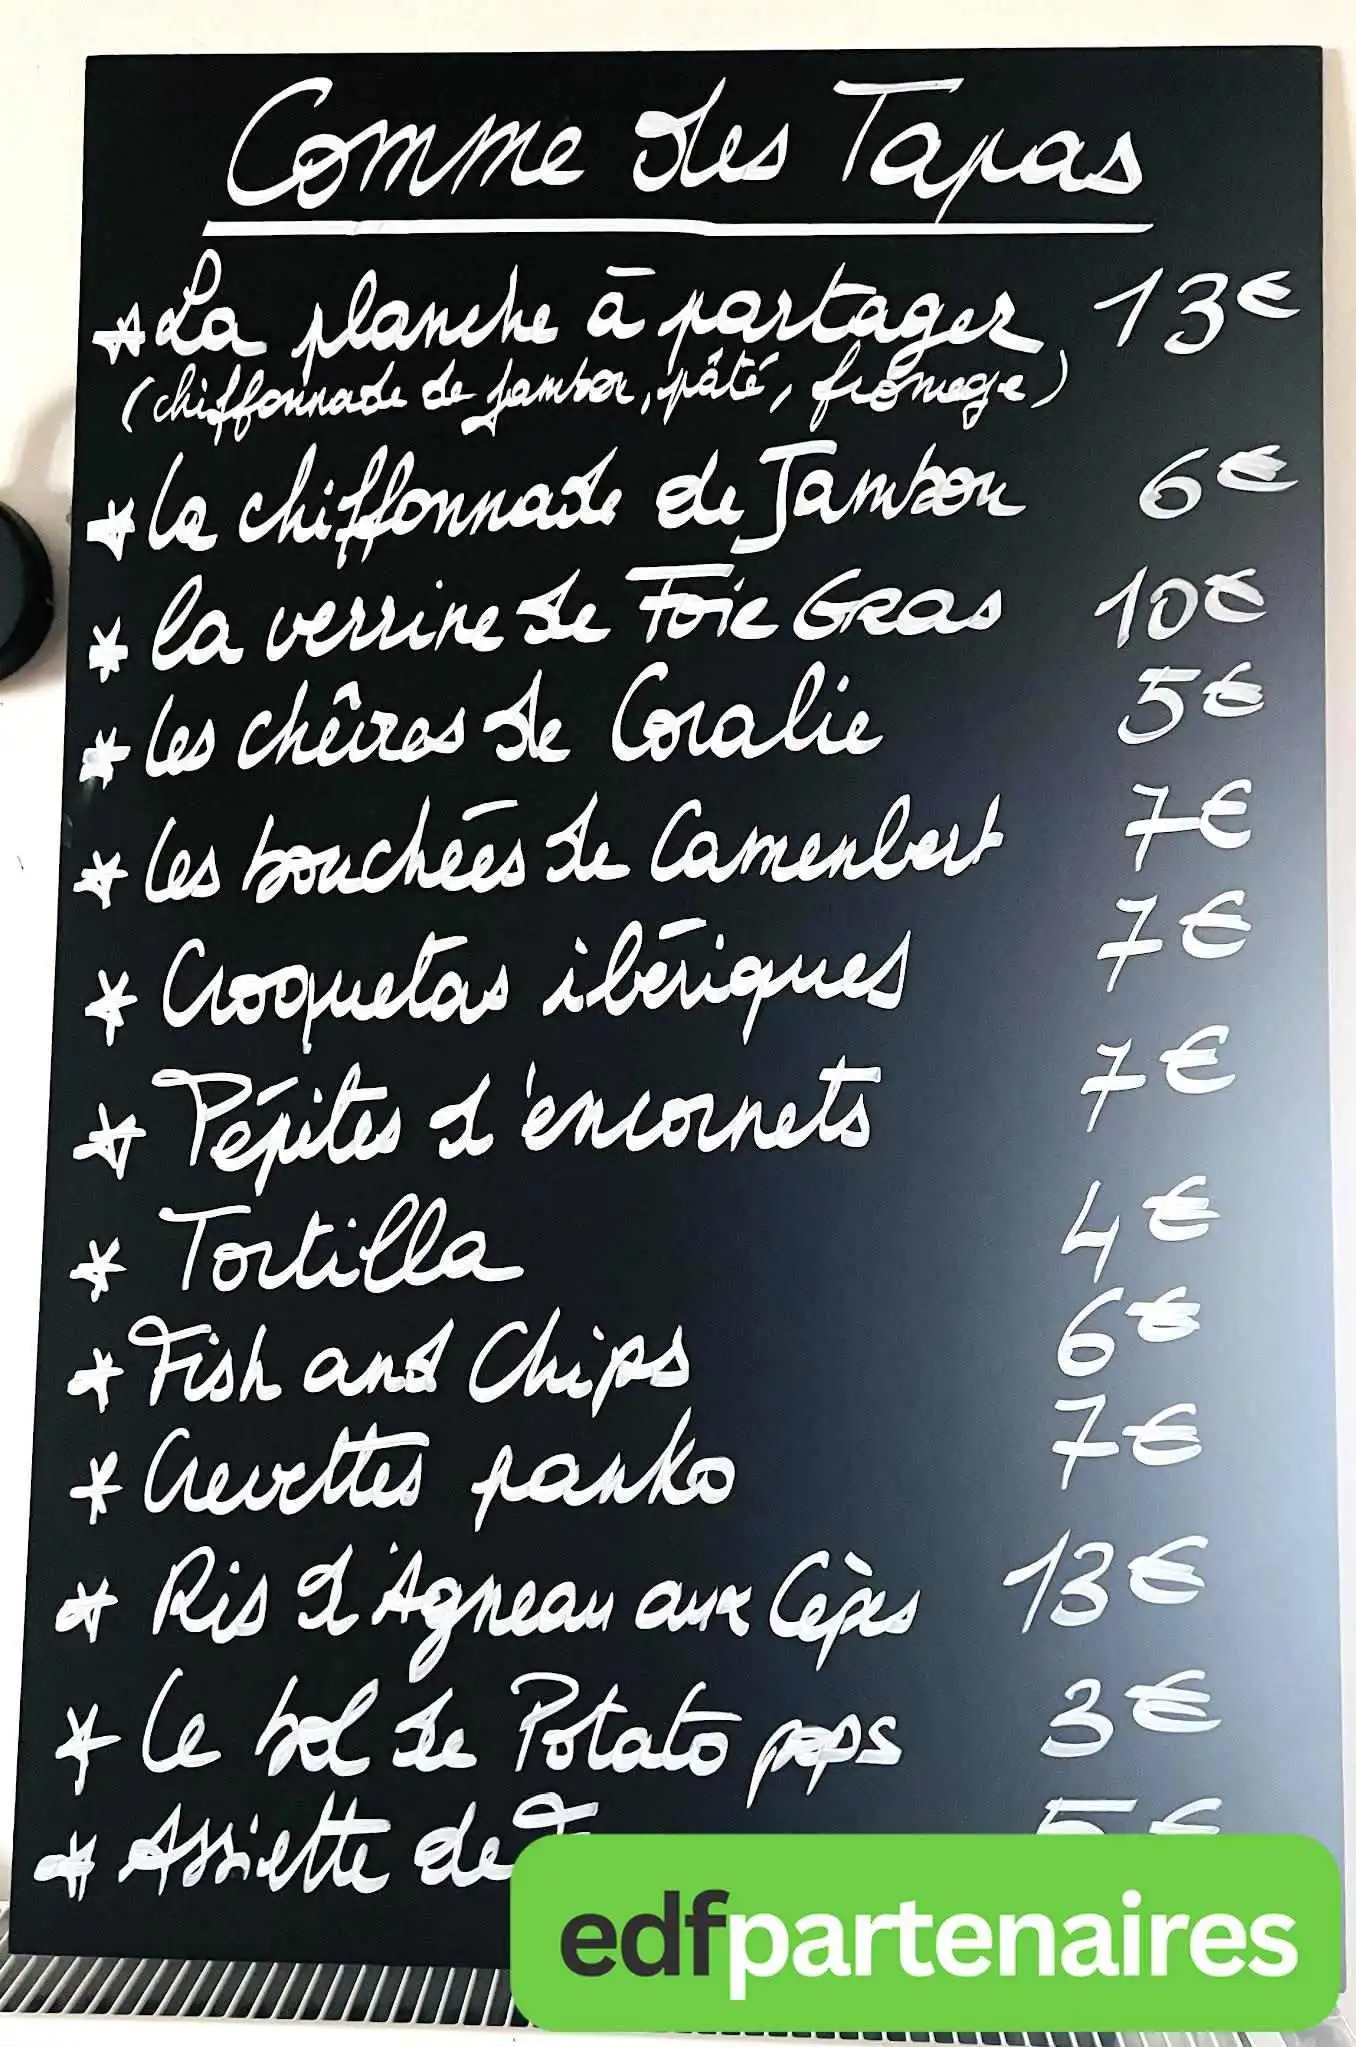 Comme des Tapas
* La planche à partager 13€
(chiffonnade de jambon, pâté, fromage)
* La chiffonnade de Jambon 6€
* La verrine de Foie Gras 10€
* Les chêvres de Coralie 5€
* Les bouchées de Camembert 7€
* Croquetas ibériques 7€
* Pépites d'encornets 7€
* Tortilla 4€
* Fish and Chips 6€
* Crevettes panko 7€
* Ris d'Agneau aux Cèpes 13€
* Le bol de Potato pops 3€
* Assiette de
edfpartenaires